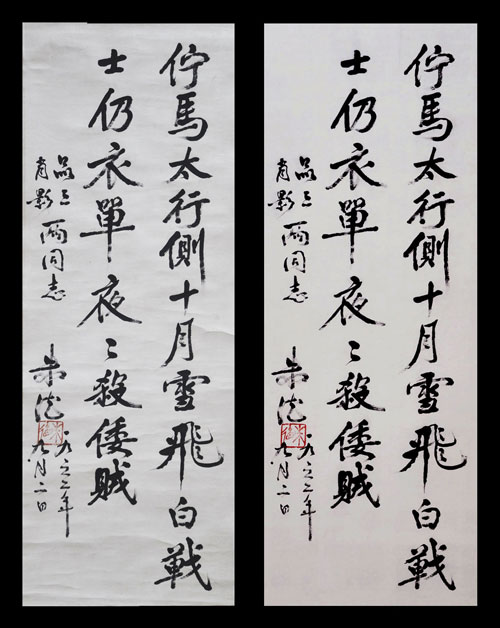 佇馬太行側十月雪飛白戰
士仍衣單夜〻殺倭賊
品三
肖影
兩同志
朱德
一九六二年
九月二日
佇馬太行側十月雪飛白戰
士仍衣單夜〻殺倭賊
品三
肖影
兩同志
朱德
一九六二年
九月二日